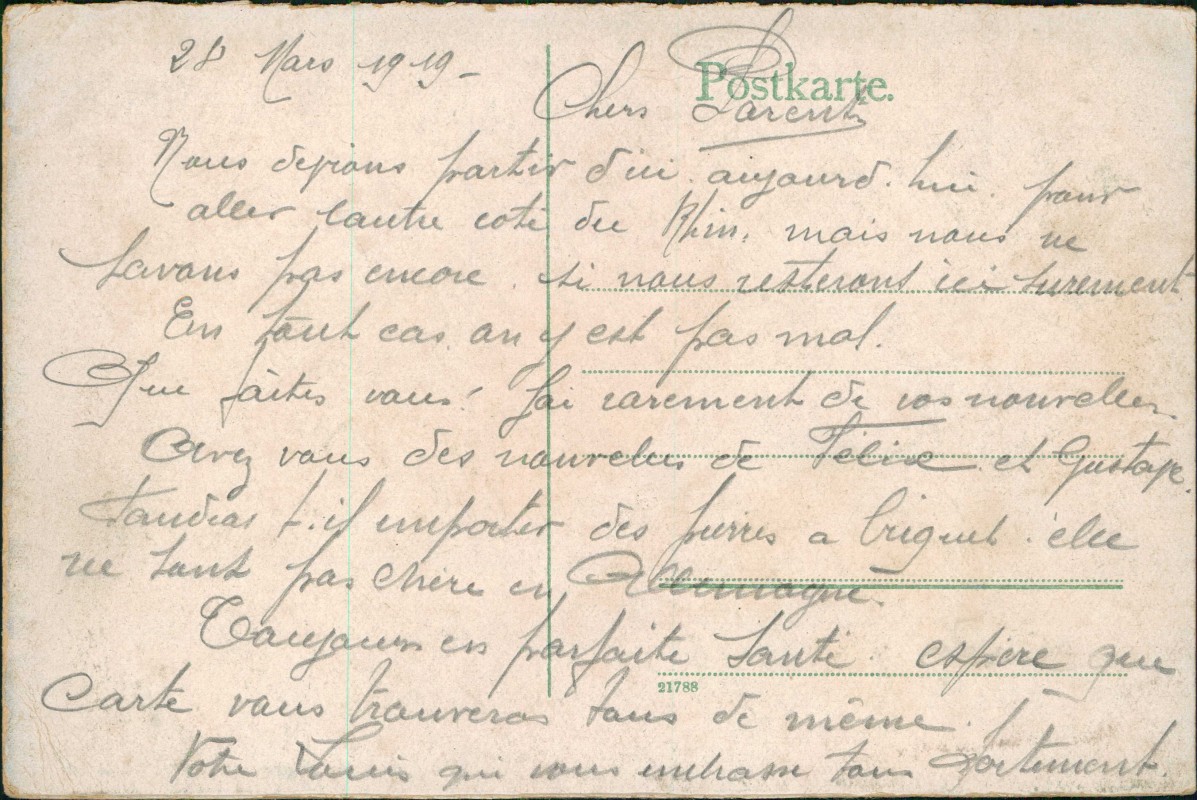 28 Mars 1919 -
Postkarte.
Chers Parents
Nous devions partir d'ici aujourd'hui pour
aller lautre coté du Rhin, mais nous ne
savons pas encore si nous resterons ici surement
En tout cas on y est pas mal.
Que faites vous! J'ai rarement de vos nouvelles
Avez vous des nouvelles de Félix et Gustave
Faudras t-il emporter des pierres a briquet elle
ne sont pas chère en Allemagne.
Toujours en parfaite Santé espère que
21788
Carte vous trouveras tous de même.
Votre Louis qui vous embrasse tous fortement.